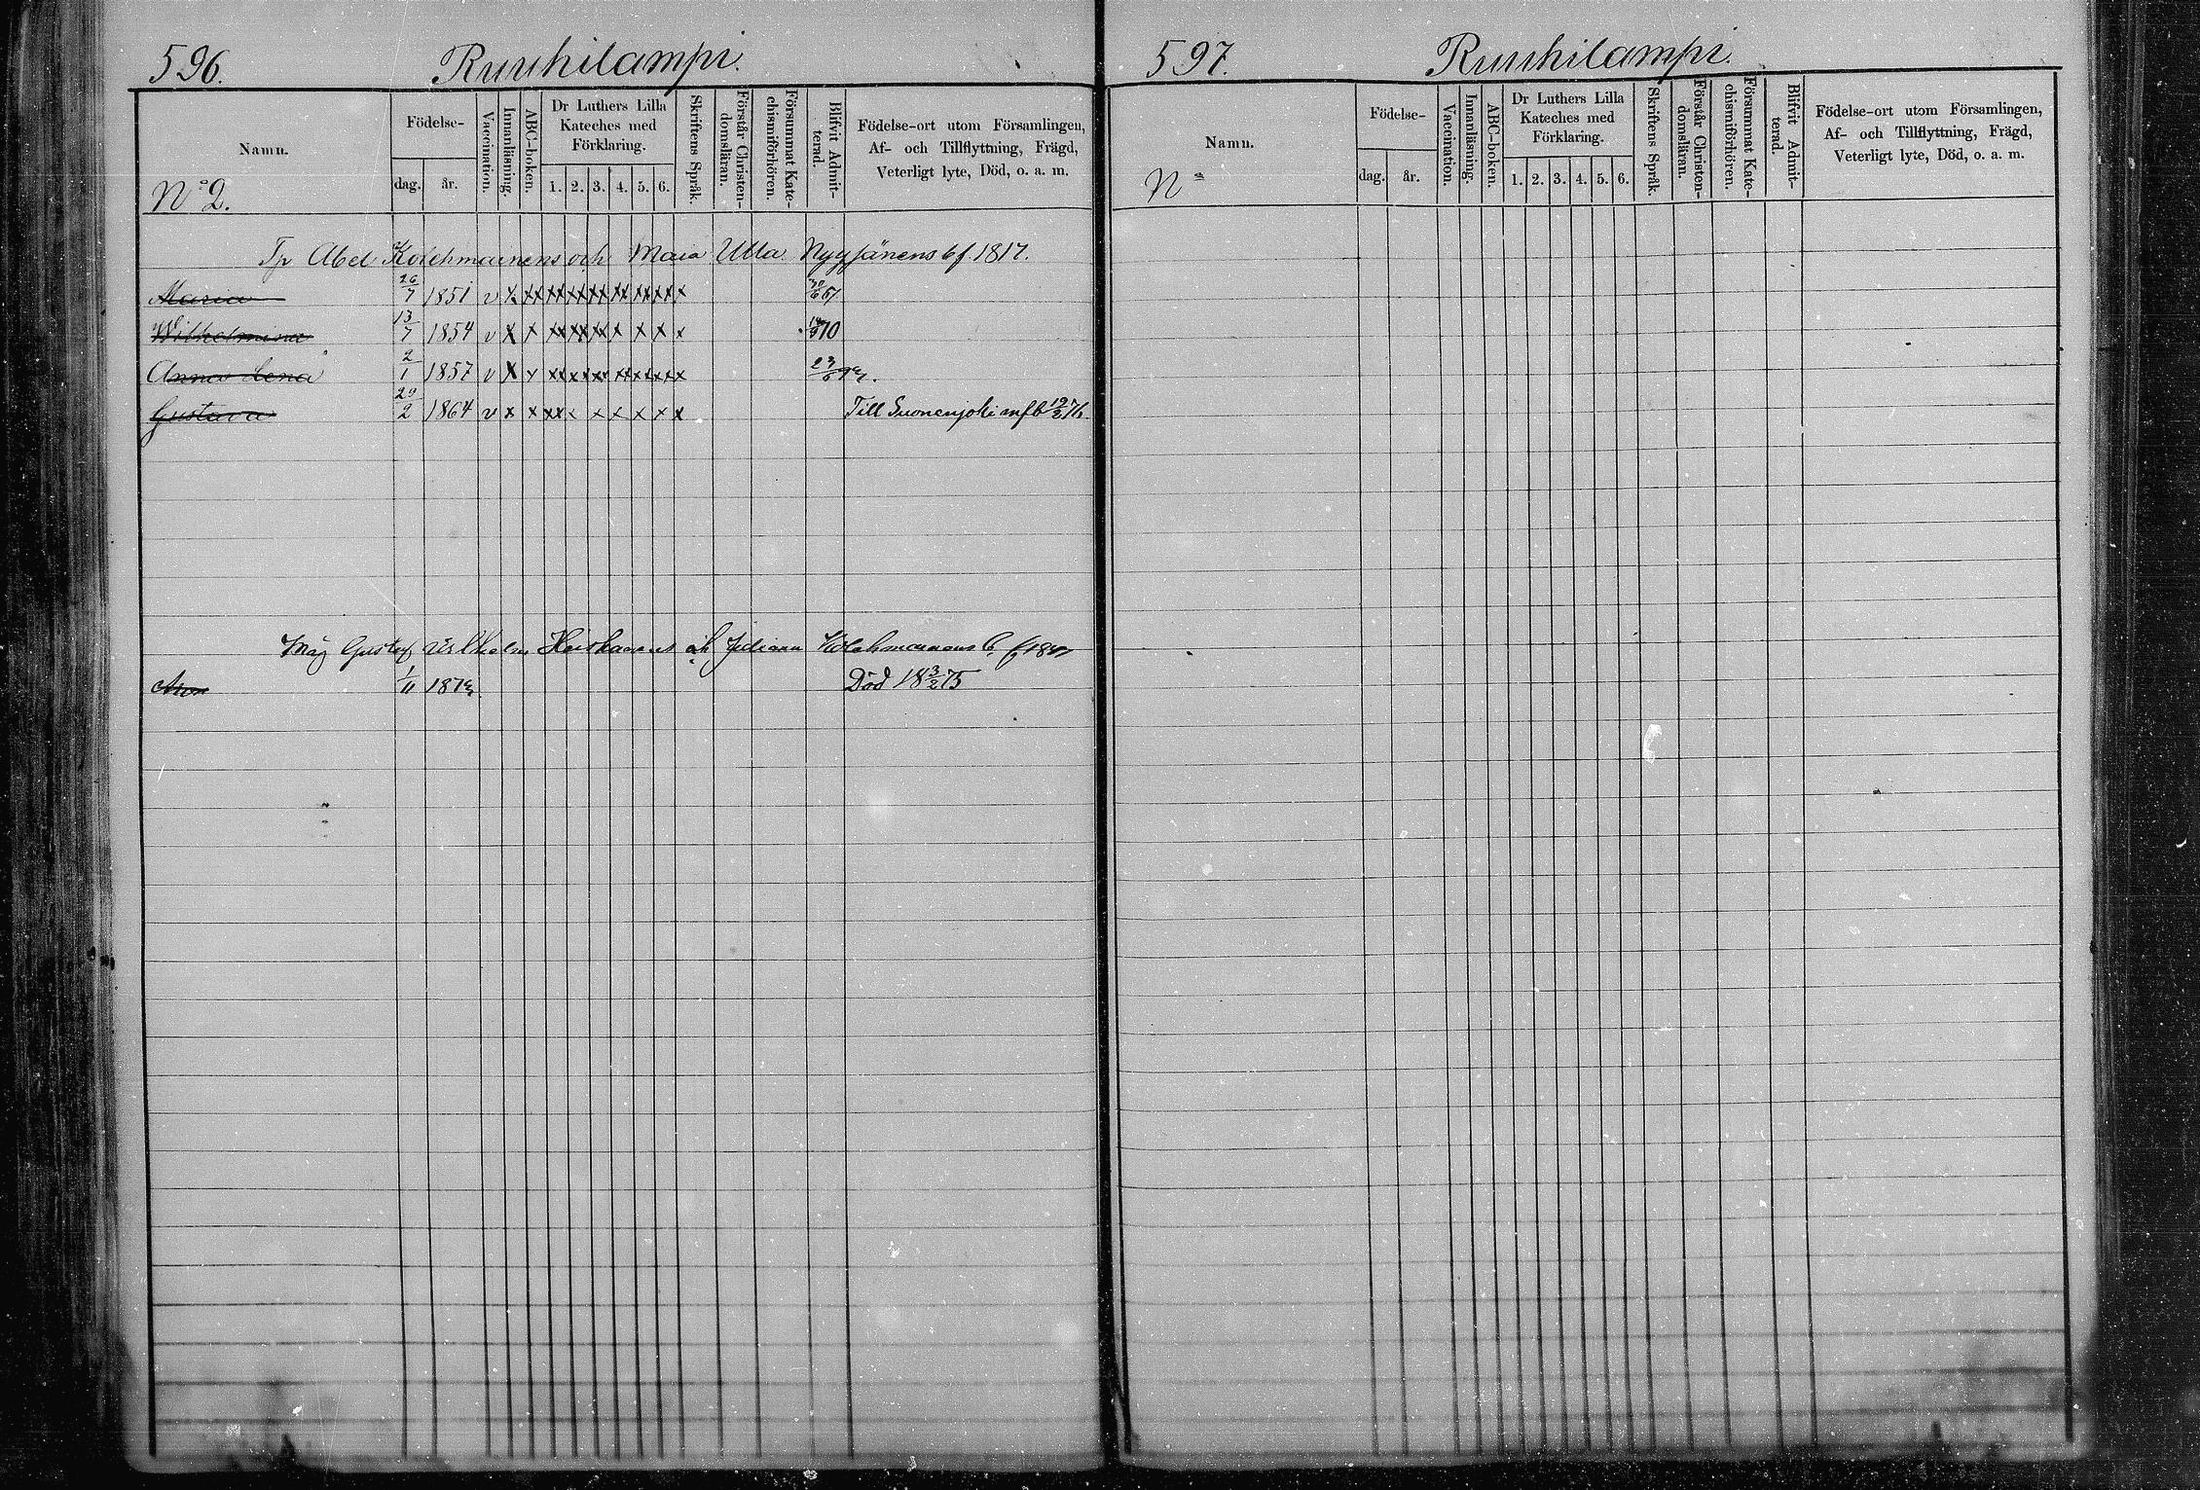 596. Ruuhilampi.
Namn.
Födelse-
dag. år.
Vaccination.
Innanläsning.
ABC-boken.
Dr Luthers Lilla
Kateches med
Förklaring.
1. 2. 3. 4. 5. 6.
Skriftens Språk.
Förstår Christen-
domsläran.
Försummat Kate-
chismiförhören.
Blifvit Admit-
terad.
Födelse-ort utom Församlingen,
Af- och Tillflyttning, Frägd,
Veterligt lyte, Död, o. a. m.
No 2.
Tp Abel Kolehmainens och Maia Ulla Nyyjänens bf. 1817.
Maria 26/7 1851 v x xx xx xx xx xx xx xx x
Wilhelmina 13/7 1854 v x x xx xx xx x x x x
Anna Lena 2/1 1857 v x x xx xx xx xx xx xx x 23/6
Gustava 29/2 1864 v x x xx x x x x x x Till Suonenjoki mfb 19/2 76.
Måg Gustaf Wilhelm Heiskanens och Juliana Kolehmainens b.
1/11 187 Död 18 3/2 75
597. Ruuhilampi.
Namn.
Födelse-
dag. år.
Vaccination.
Innanläsning.
ABC-boken.
Dr Luthers Lilla
Kateches med
Förklaring.
1. 2. 3. 4. 5. 6.
Skriftens Språk.
Förstår Christen-
domsläran.
Försummat Kate-
chismiförhören.
Blifvit Admit-
terad.
Födelse-ort utom Församlingen,
Af- och Tillflyttning, Frägd,
Veterligt lyte, Död, o. a. m.
No